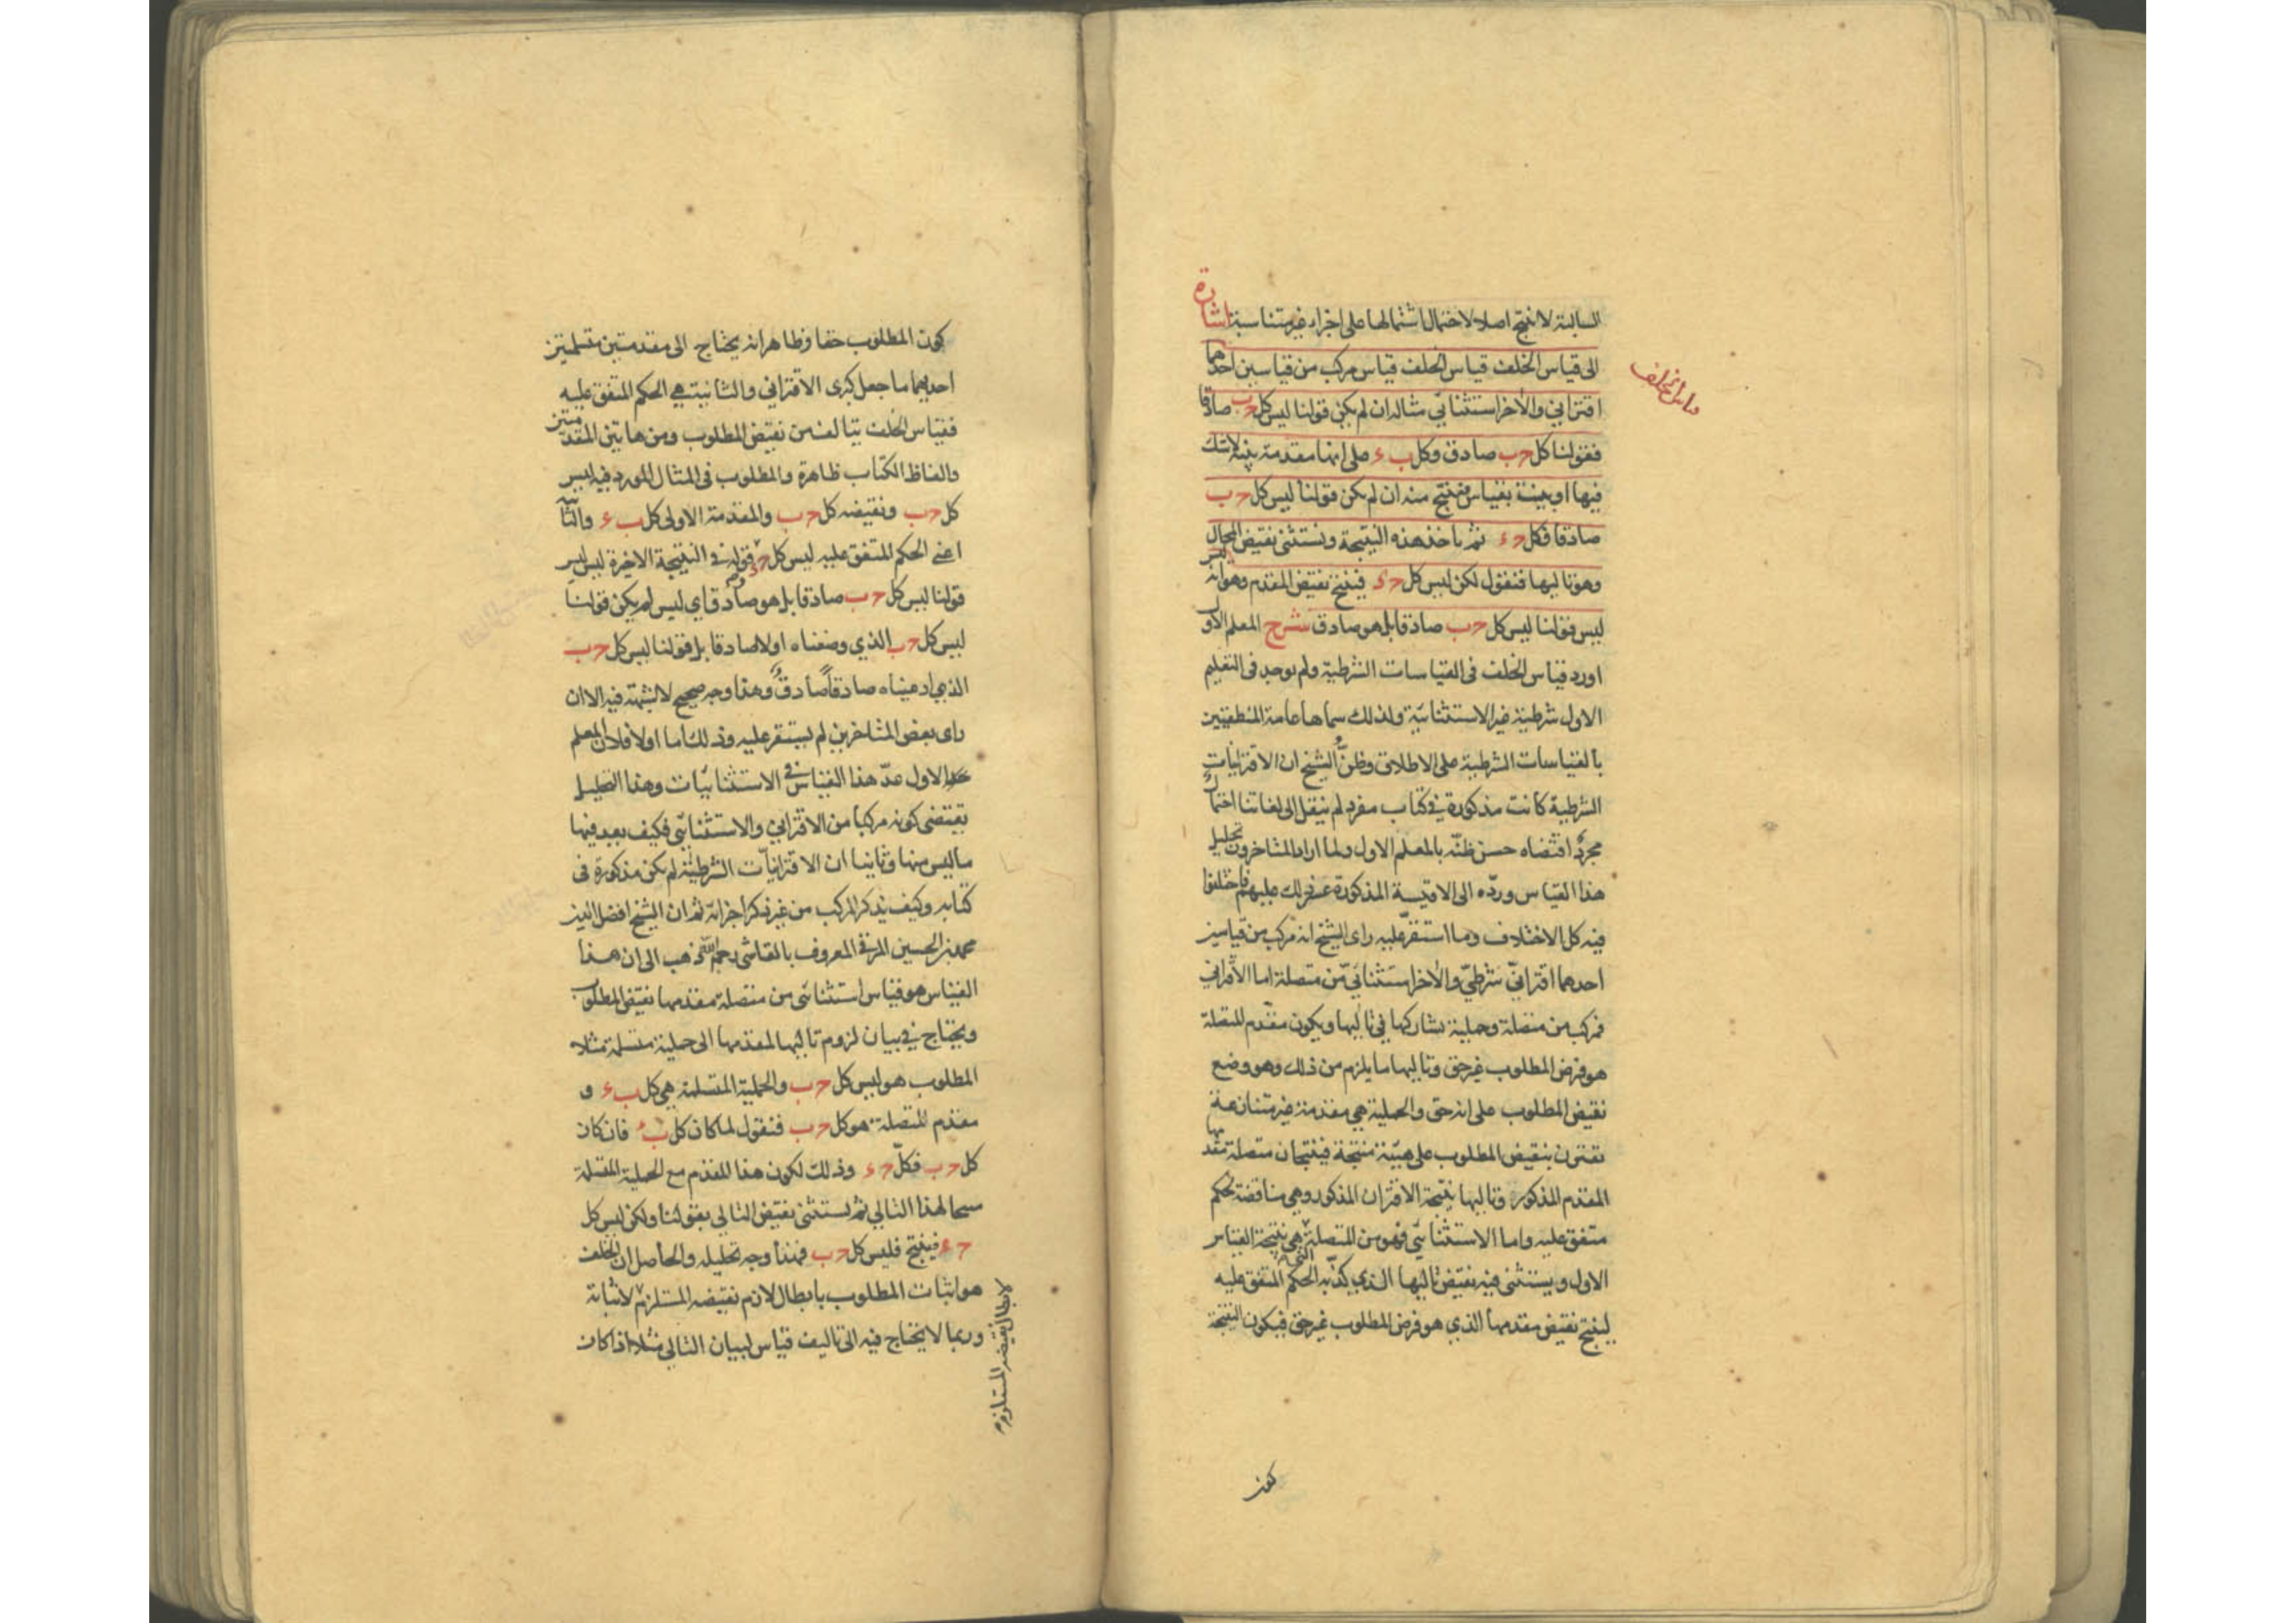 السالبة لا تنتج اصلا لاحتمال اشتمالها على اجزاء غير متناسبة اشارة
الى قياس الخلف قياس الخلف قياس مركب من قياسين احدهما
قياس الخلف
اقترانى والاخر استثنائى مثاله ان لم يكن قولنا ليس كل ح ب صادقا
فقولنا كل ح ب صادق وكل ب ء على انها مقدمة بينة لا شك
فيها او بينت بقياس فينتج منه ان لم يكن قولنا ليس كل ح ب
صادقا فكل ح ء ثم ناخذ هذه النتيجة ونستثنى نقيض المحال
وهو تاليها فنقول لكن ليس كل ح ء فينتج نقيض المقدم وهو انه ليس
ليس قولنا ليس كل ح ب صادقا بل هو صادق شرح المعلم الاول
اورد قياس الخلف فى القياسات الشرطية ولم يوجد فى التعليم
الاول شرطية غير الاستثنائية ولذلك سماها عامة المنطقيين
بالقياسات الشرطية على الاطلاق وظن الشيخ ان الاقترانيات
الشرطية كانت مذكورة فى كتاب مفرد لم ينقل الى لغاتنا احتمال
مجرد اقتضاه حسن ظنه بالمعلم الاول ولما اراد المتاخرون تحليل
هذا القياس ورده الى الاقيسة المذكورة عسر ذلك عليهم فاختلفوا
فيه كل الاختلاف وما استقر عليه راى الشيخ انه مركب من قياسين
احدهما اقترانى شرطى والاخر استثنائى من متصلة اما الاقترانى
فمركب من متصلة وحملية تشاركها فى تاليها ويكون مقدم المتصلة
هو فرض المطلوب غير حق وتاليها ما يلزم من ذلك وهو وضع
نقيض المطلوب على انه حق والحملية هى مقدمة غير متنازعة
تقترن بنقيض المطلوب على هيئة منتجة فينتجان متصلة مقدمها
المقدم المذكور وتاليها نتيجة الاقتران المذكور وهى مناقضة لحكم
متفق عليه واما الاستثنائى فهو من المتصلة التى هى نتيجة القياس
الاول ويستثنى فيه نقيض تاليها الذى كذبه الحكم المتفق عليه
لينتج نقيض مقدمها الذى هو فرض المطلوب غير حق فيكون النتيجة
كون
كون المطلوب حقا وظاهر انه يحتاج الى مقدمتين متسلمتين
احديهما ما جعل كبرى الاقترانى والثانية هى الحكم المتفق عليه
فقياس الخلف يتالف من نقيض المطلوب ومن هاتين المقدمتين
والفاظ الكتاب ظاهرة والمطلوب فى المثال المورد فيه ليس
كل ح ب ونقيضه كل ح ب والمقدمة الاولى كل ب ء والثانية
اعنى الحكم المتفق عليه ليس كل ح ء وقوله فى النتيجة الاخيرة ليس ليس
قولنا ليس كل ح ب صادقا بل هو صادق اى ليس لم يكن قولنا
ليس كل ح ب الذى وضعناه اولا صادقا بل قولنا ليس كل ح ب
الذى ادعيناه صادقا صادق وهذا وجه صحيح لا شبهة فيه الا ان
راى بعض المتاخرين لم يستقر عليه وذلك اما اولا فلان المعلم
الاول عد هذا القياس فى الاستثنائيات وهذا التحليل
يقتضى كونه مركبا من الاقترانى والاستثنائى فكيف يعد فيها
ما ليس منها وثانيا ان الاقترانيات الشرطية لم يكن مذكورة فى
كتابه وكيف يذكر المركب من غير ذكر اجزائه ثم ان الشيخ افضل الدين
محمد بن الحسين المرقى المعروف بالقاشى رحمه الله ذهب الى ان هذا
القياس هو قياس استثنائى من متصلة مقدمها نقيض المطلوب
ويحتاج فى بيان لزوم تاليها لمقدمها الى حملية متسلمة مثلا
المطلوب هو ليس كل ح ب والحملية المتسلمة هى كل ب ء و
مقدم المتصلة هو كل ح ب فنقول لما كان كل ب ء فان كان
كل ح ب فكل ح ء وذلك لكون هذا المقدم مع الحملية المتسلمة
منتجا لهذا التالى ثم نستثنى نقيض التالى بقولنا ولكن ليس كل
ح ء فينتج فليس كل ح ب فهذا وجه تحليله والحاصل ان الخلف
هو اثبات المطلوب بابطال لازم نقيضه المستلزم لاثباته
لابطال نقيضه المستلزم
وربما لا يحتاج فيه الى تاليف قياس لبيان التالى مثلا اذا كان